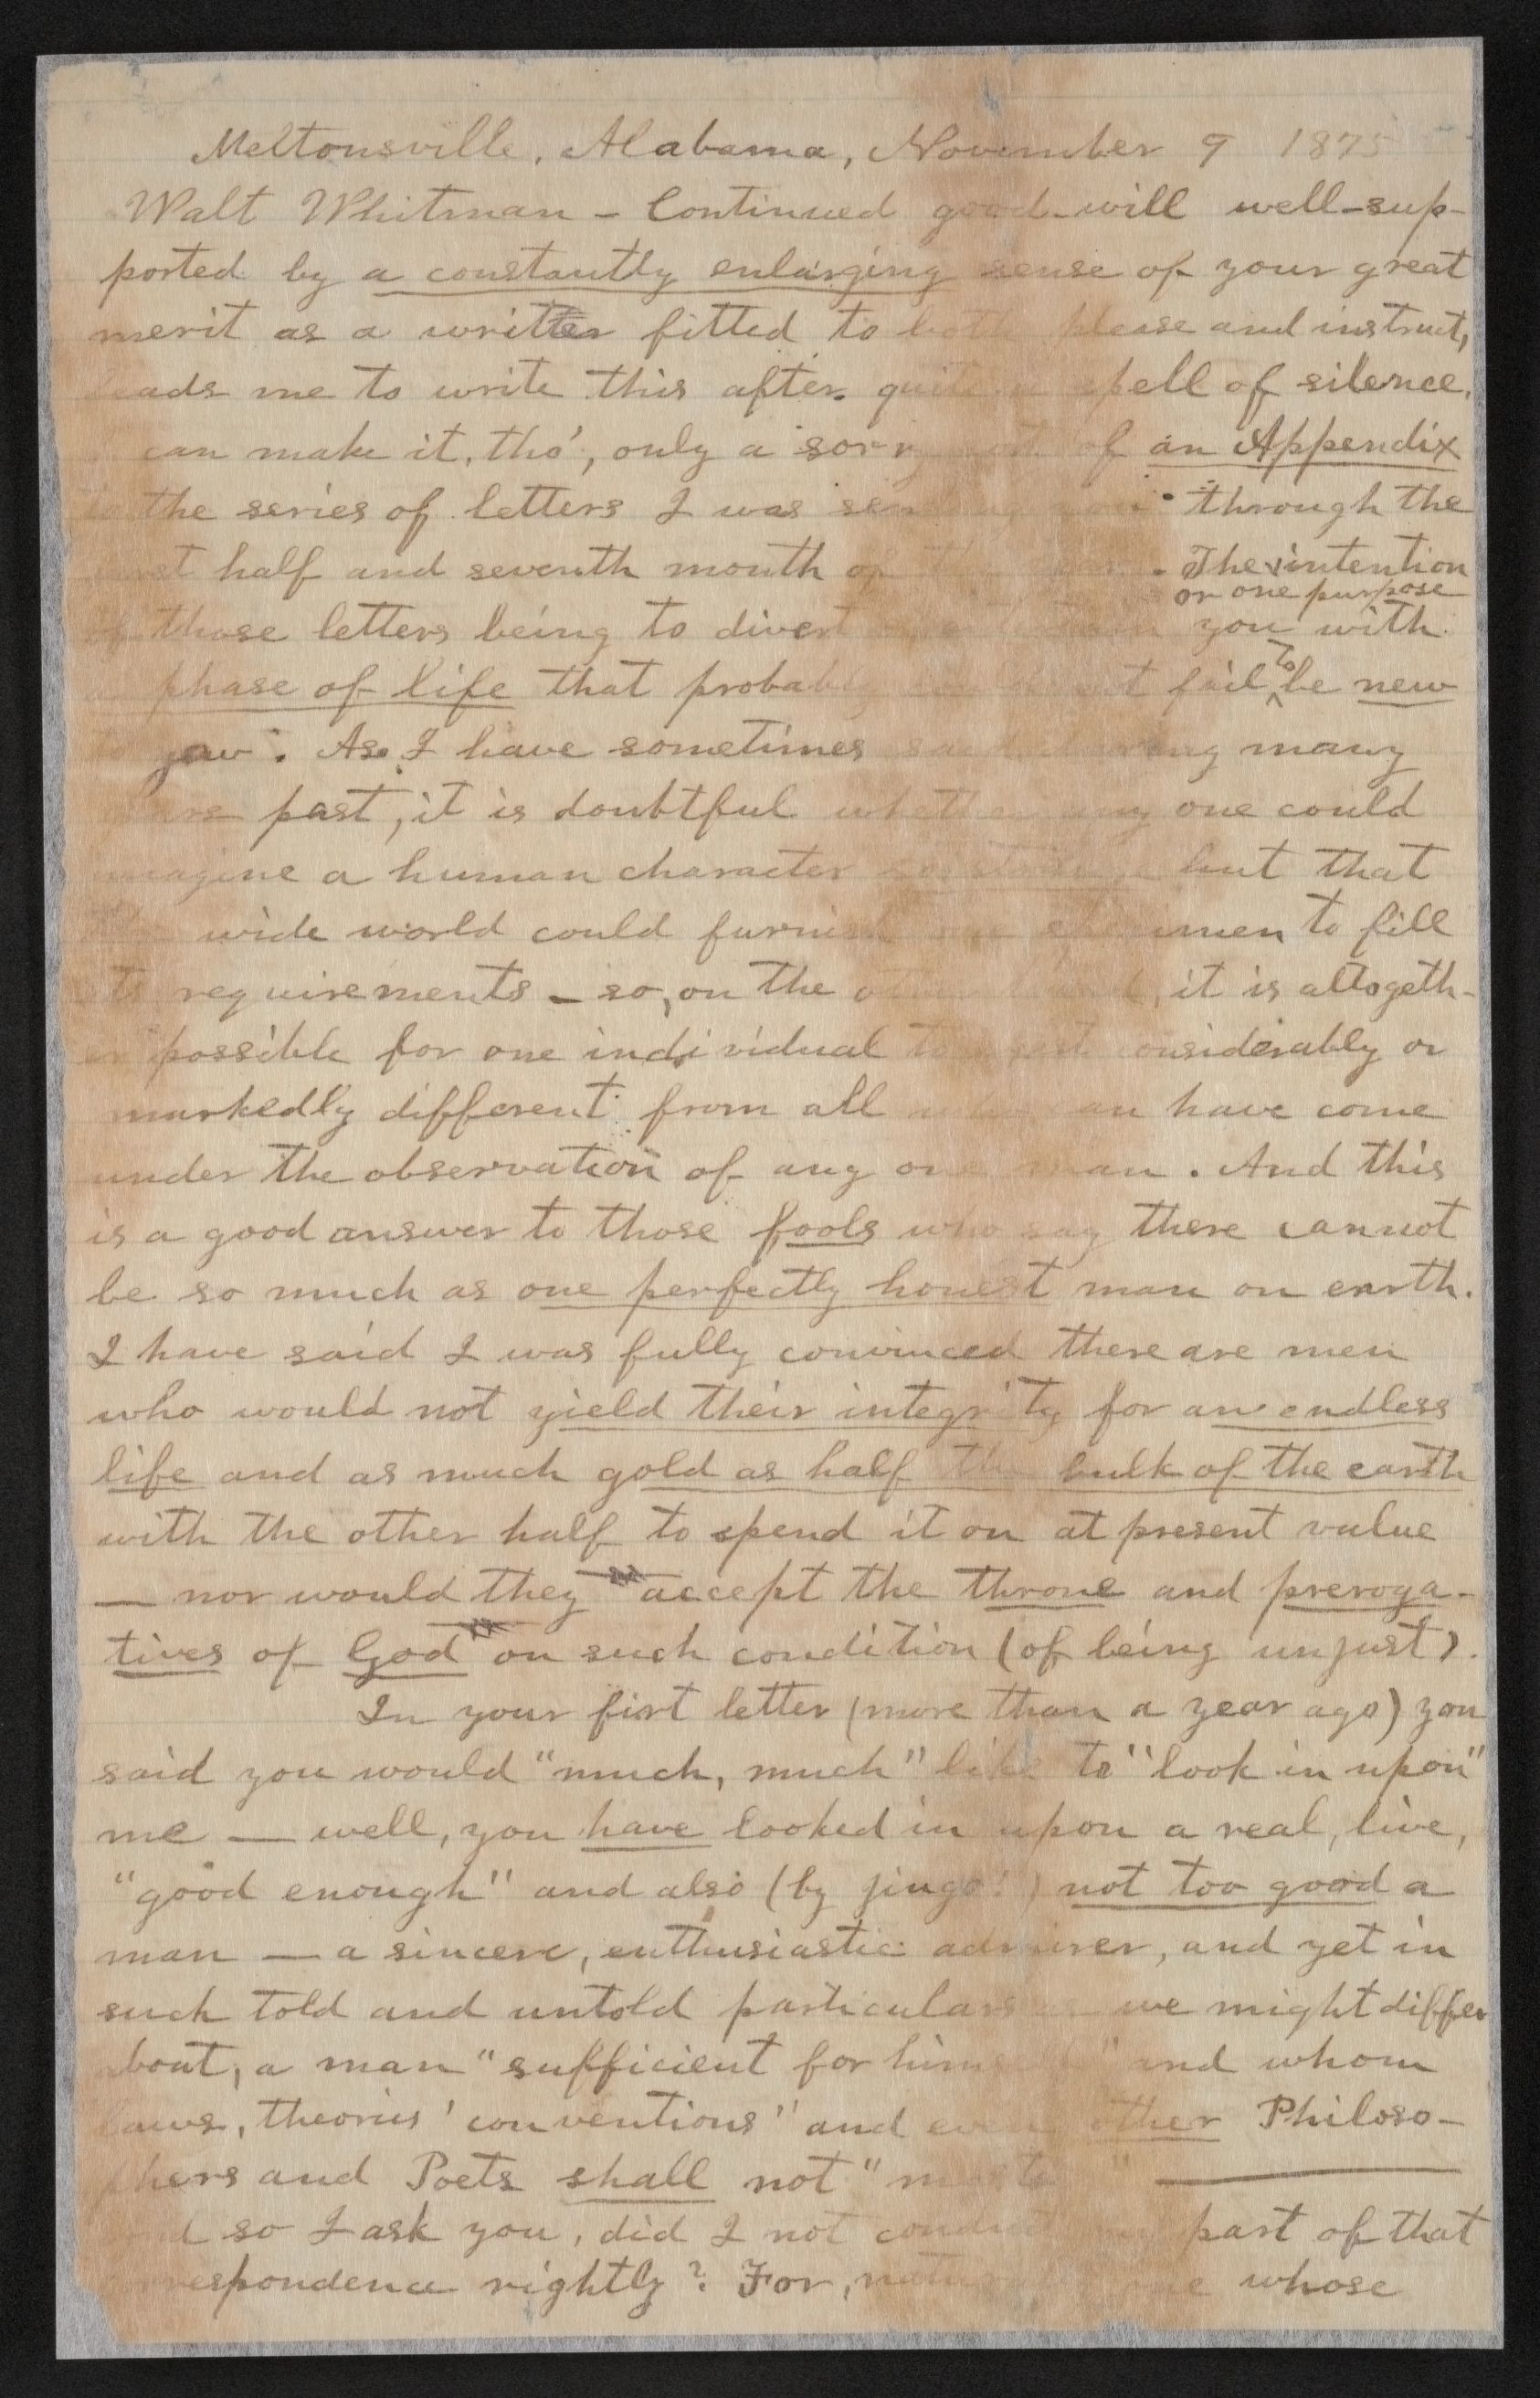 Meltonsville, Alabama, November 9 1875
Walt Whitman – Continued good-will well-sup-
ported by a constantly enlarging sense of your great
merit as a writer fitted to both please and instruct,
leads me to write this after quite a spell of silence.
can make it, tho', only a sorry sort of an Appendix
to the series of letters I was sending you through the
first half and seventh month of the year. The intention
or one purpose
of those letters being to divert you with
a phase of life that probably could not fail to be new
to you. As I have sometimes said during many
years past, it is doubtful whether any one could
imagine a human character so strange but that
the wide world could furnish one specimen to fill
its requirements – so, on the other hand, it is altogeth-
er possible for one individual to exist considerably or
markedly different from all who can have come
under the observation of any one man. And this
is a good answer to those fools who say there cannot
be so much as one perfectly honest man on earth.
I have said I was fully convinced there are men
who would not yield their integrity for an endless
life and as much gold as half the bulk of the earth
with the other half to spend it on at present value
— nor would they accept the throne and preroga-
tives of God on such condition (of being unjust).
In your first letter (more than a year ago) you
said you would "much, much" like to "look in upon"
me — well, you have looked in upon a real, live,
"good enough" and also (by jingo!) not too good a
man — a sincere, enthusiastic admirer, and yet in
such told and untold particulars as we might differ
about, a man "sufficient for himself" and whom
laws, theories 'conventions" and even other Philoso-
phers and Poets shall not "master" —
and so I ask you, did I not conduct my part of that
correspondence rightly? For, whose